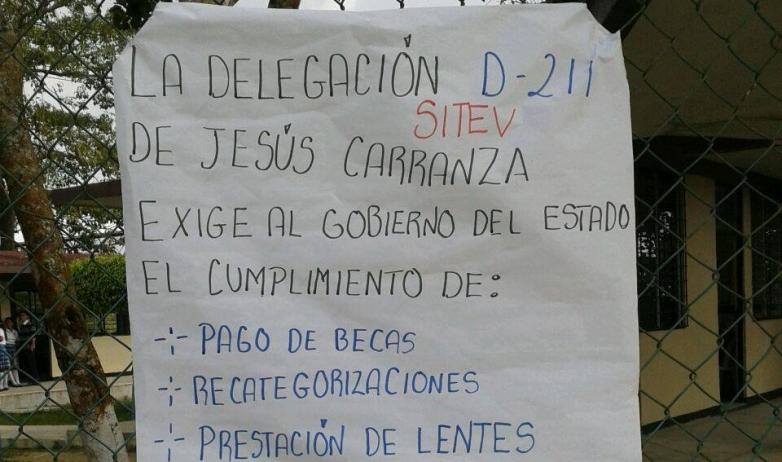 LA DELEGACIÓN D-211
SITEV
DE JESÚS CARRANZA
EXIGE AL GOBIERNO DEL ESTADO
EL CUMPLIMIENTO DE:
-¦- PAGO DE BECAS
-¦- RECATEGORIZACIONES
-¦- PRESTACIÓN DE LENTES